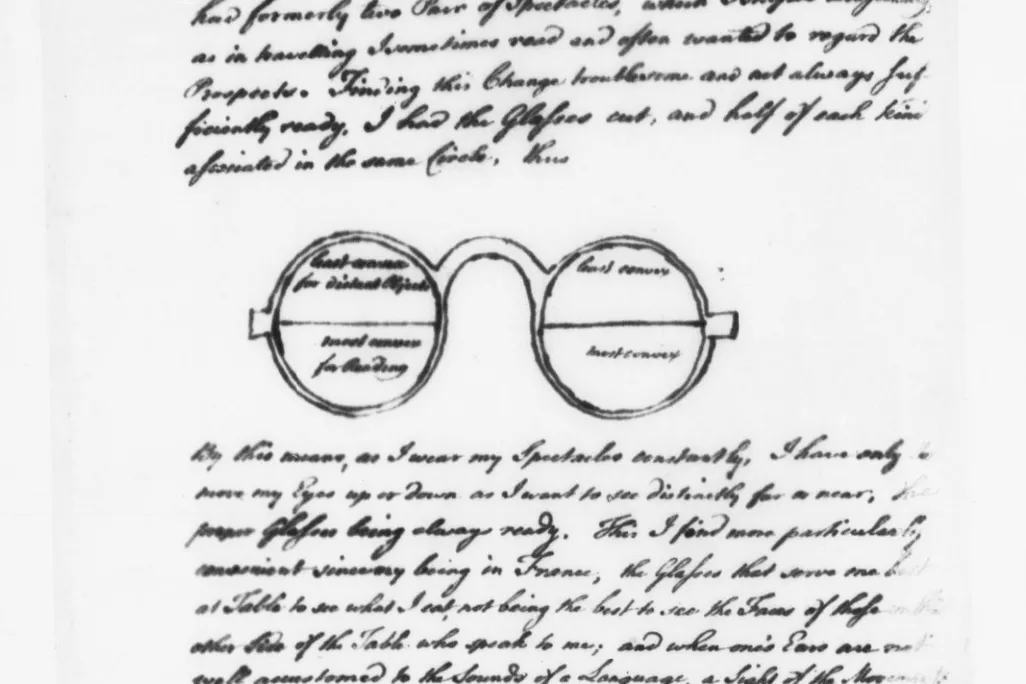 had formerly two Pair of Spectacles, which
as in travelling I sometimes read and often wanted to regard the
Prospects. Finding this Change troublesome and not always suf-
ficiently ready, I had the Glasses cut, and half of each kind
associated in the same Circle, thus
least convex
for distant Objects
most convex
for Reading
least convex
most convex
By this means, as I wear my Spectacles constantly, I have only to
move my Eyes up or down as I want to see distinctly far or near, the
proper Glasses being always ready. This I find more particularly
convenient since my being in France, the Glasses that serve me best
at Table to see what I eat, not being the best to see the Faces of those on the
other Side of the Table who speak to me; and when one's Ears are not
well accustomed to the Sounds of a Language, a Sight of the